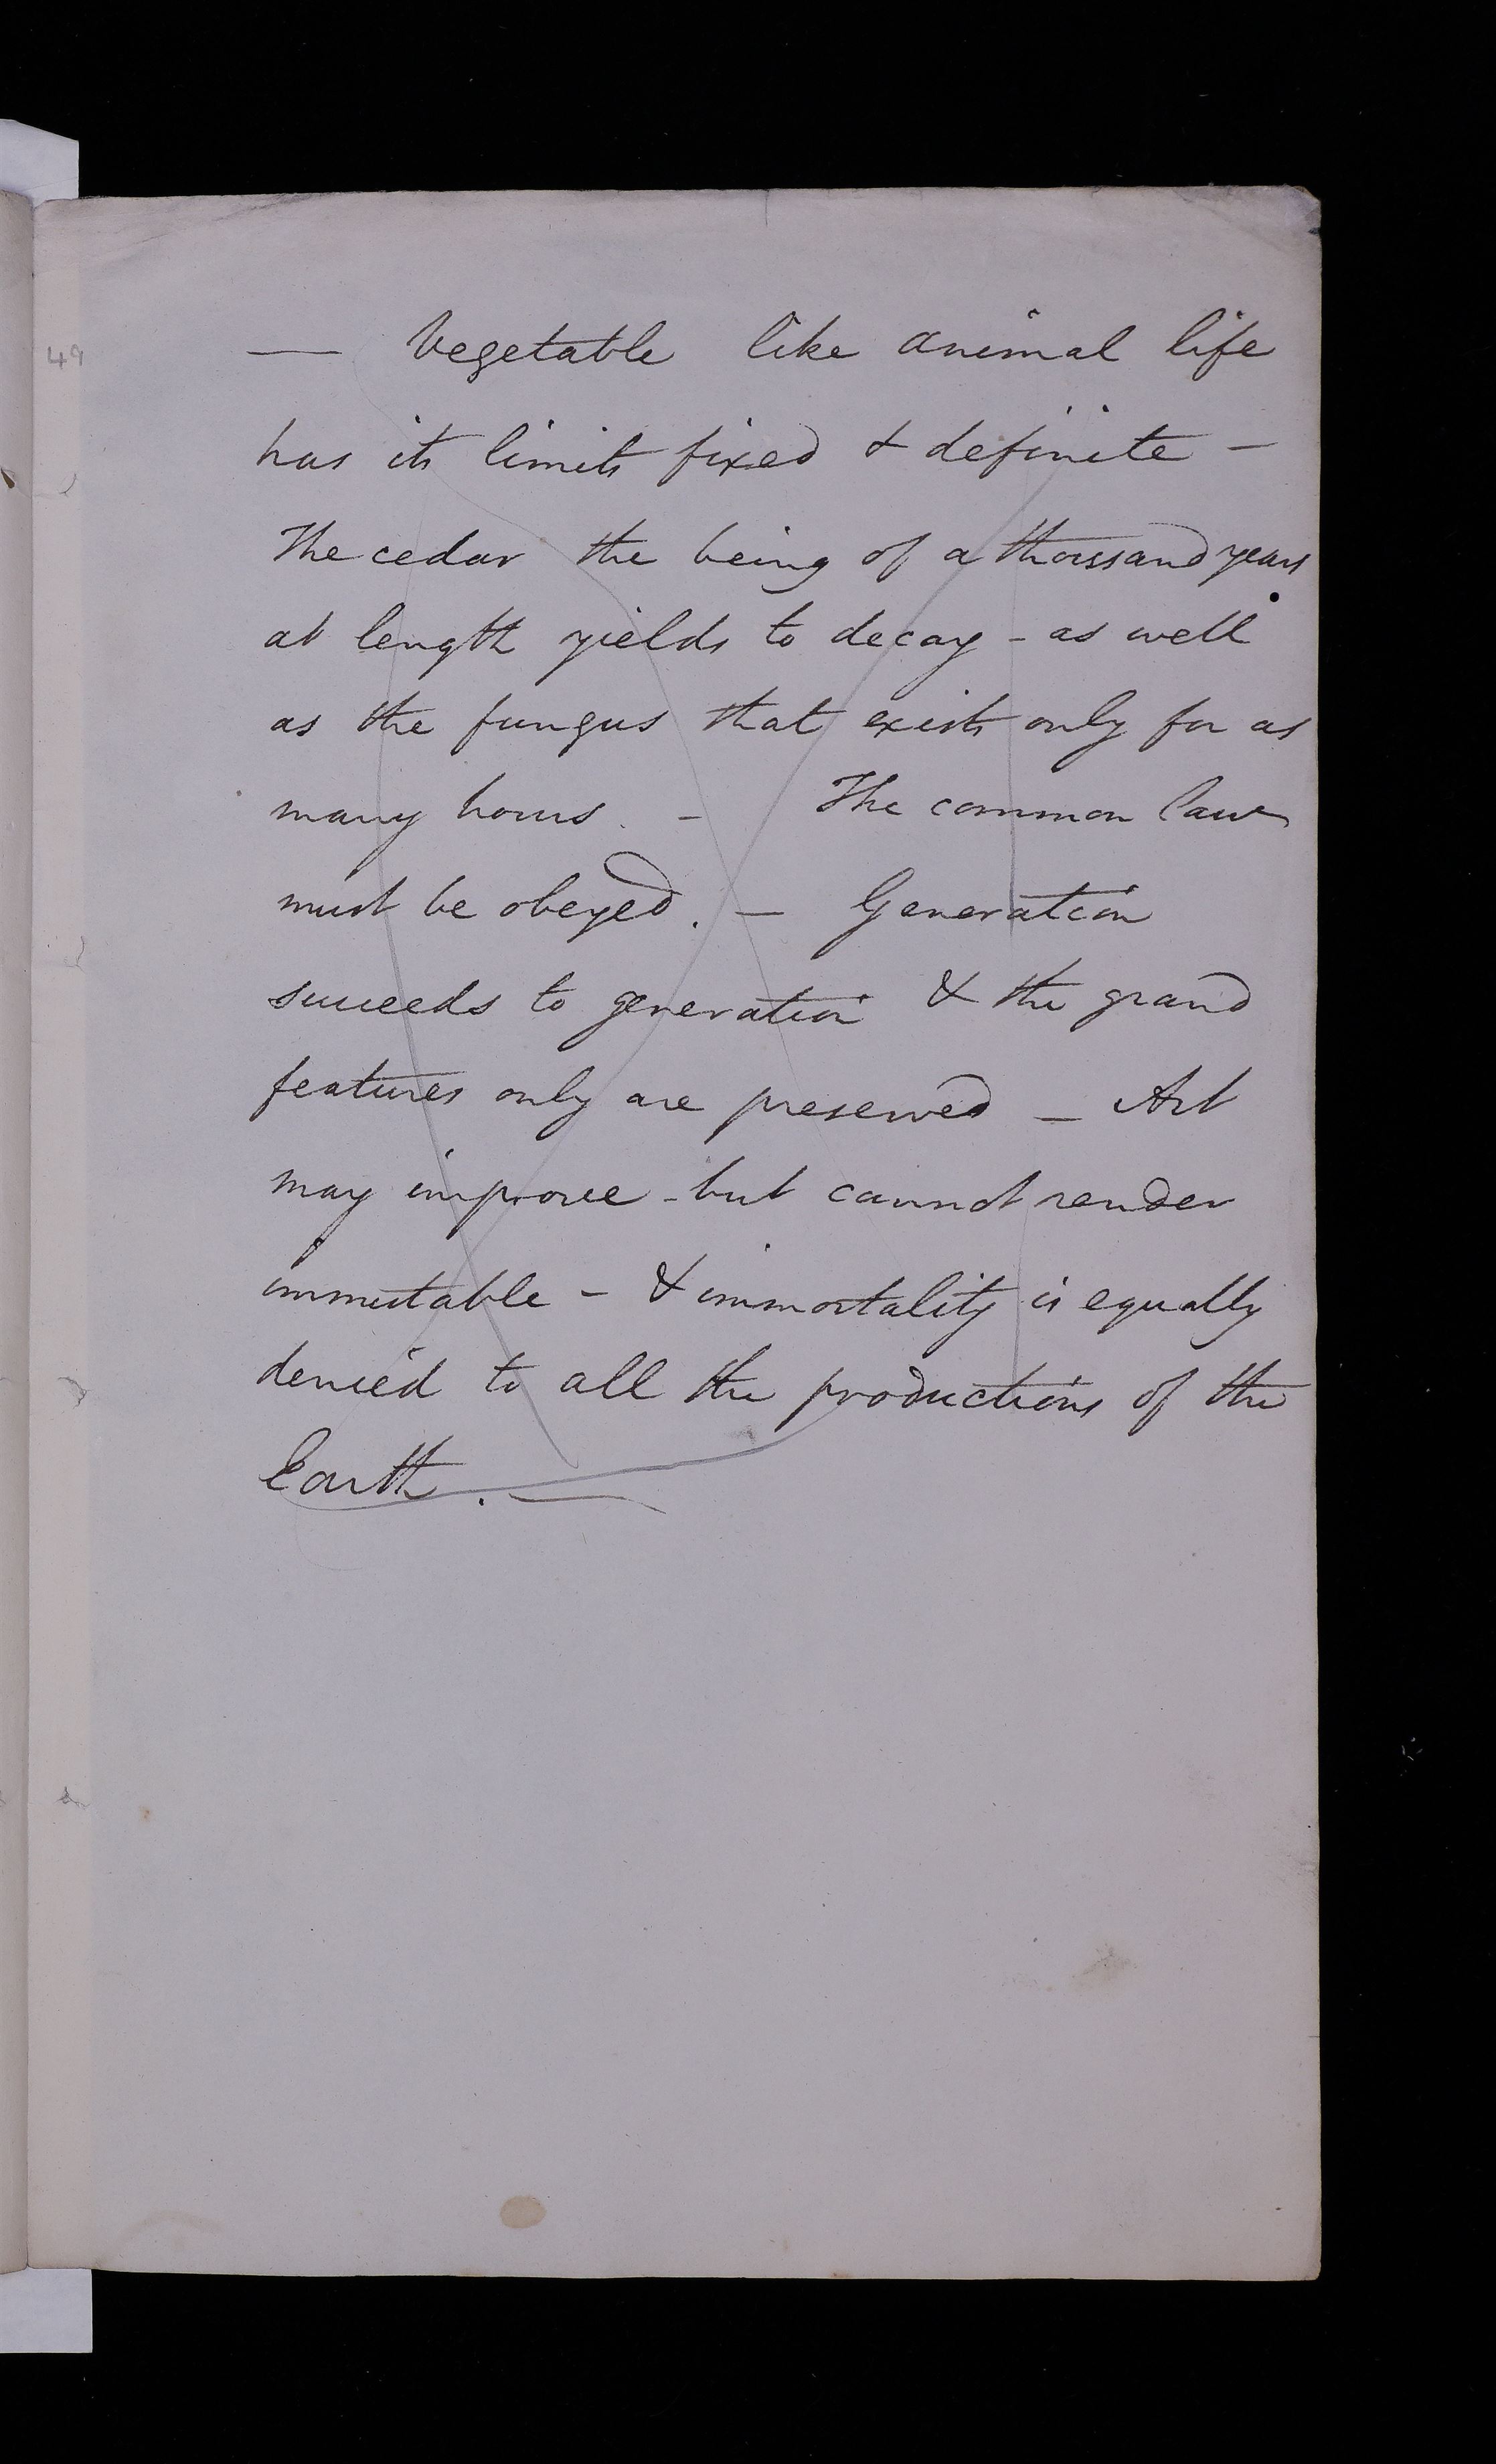 — Vegetable like animal life
has its limits fixed & definite -
The cedar the being of a thousand years
at length yields to decay - as well
as the fungus that exists only for as
many hours. - The common law
must be obeyed. - Generation
succeeds to generation & the grand
features only are preserved - Art
may improve - but cannot render
immutable - & immortality is equally
denied to all the productions of the
Earth. —
49